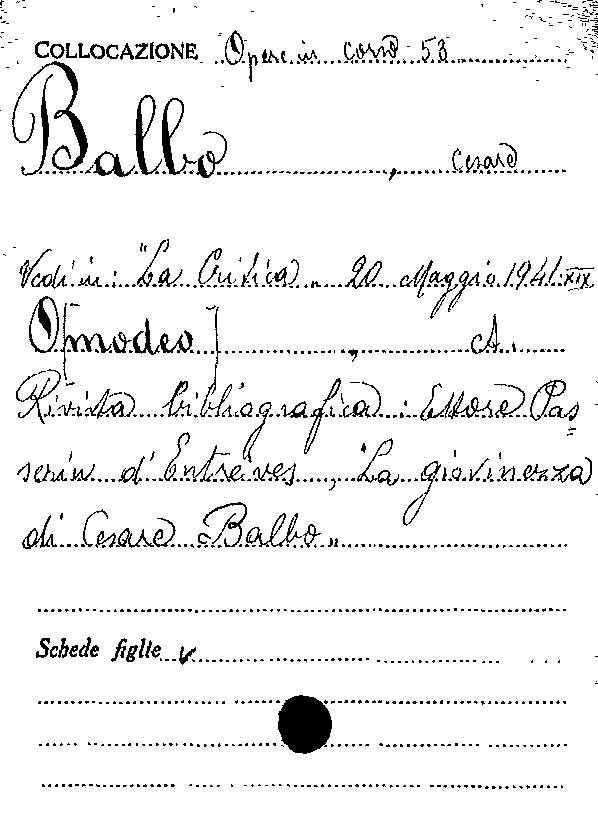 COLLOCAZIONE Opere in corso 53
Balbo, Cesare
Vedi in: "La Critica" 20 Maggio 1941-XIX
O[modeo], A.
Rivista bibliografica: Ettore Pas=
serin d'Entrèves, "La giovinezza
di Cesare Balbo"
Schede figlie